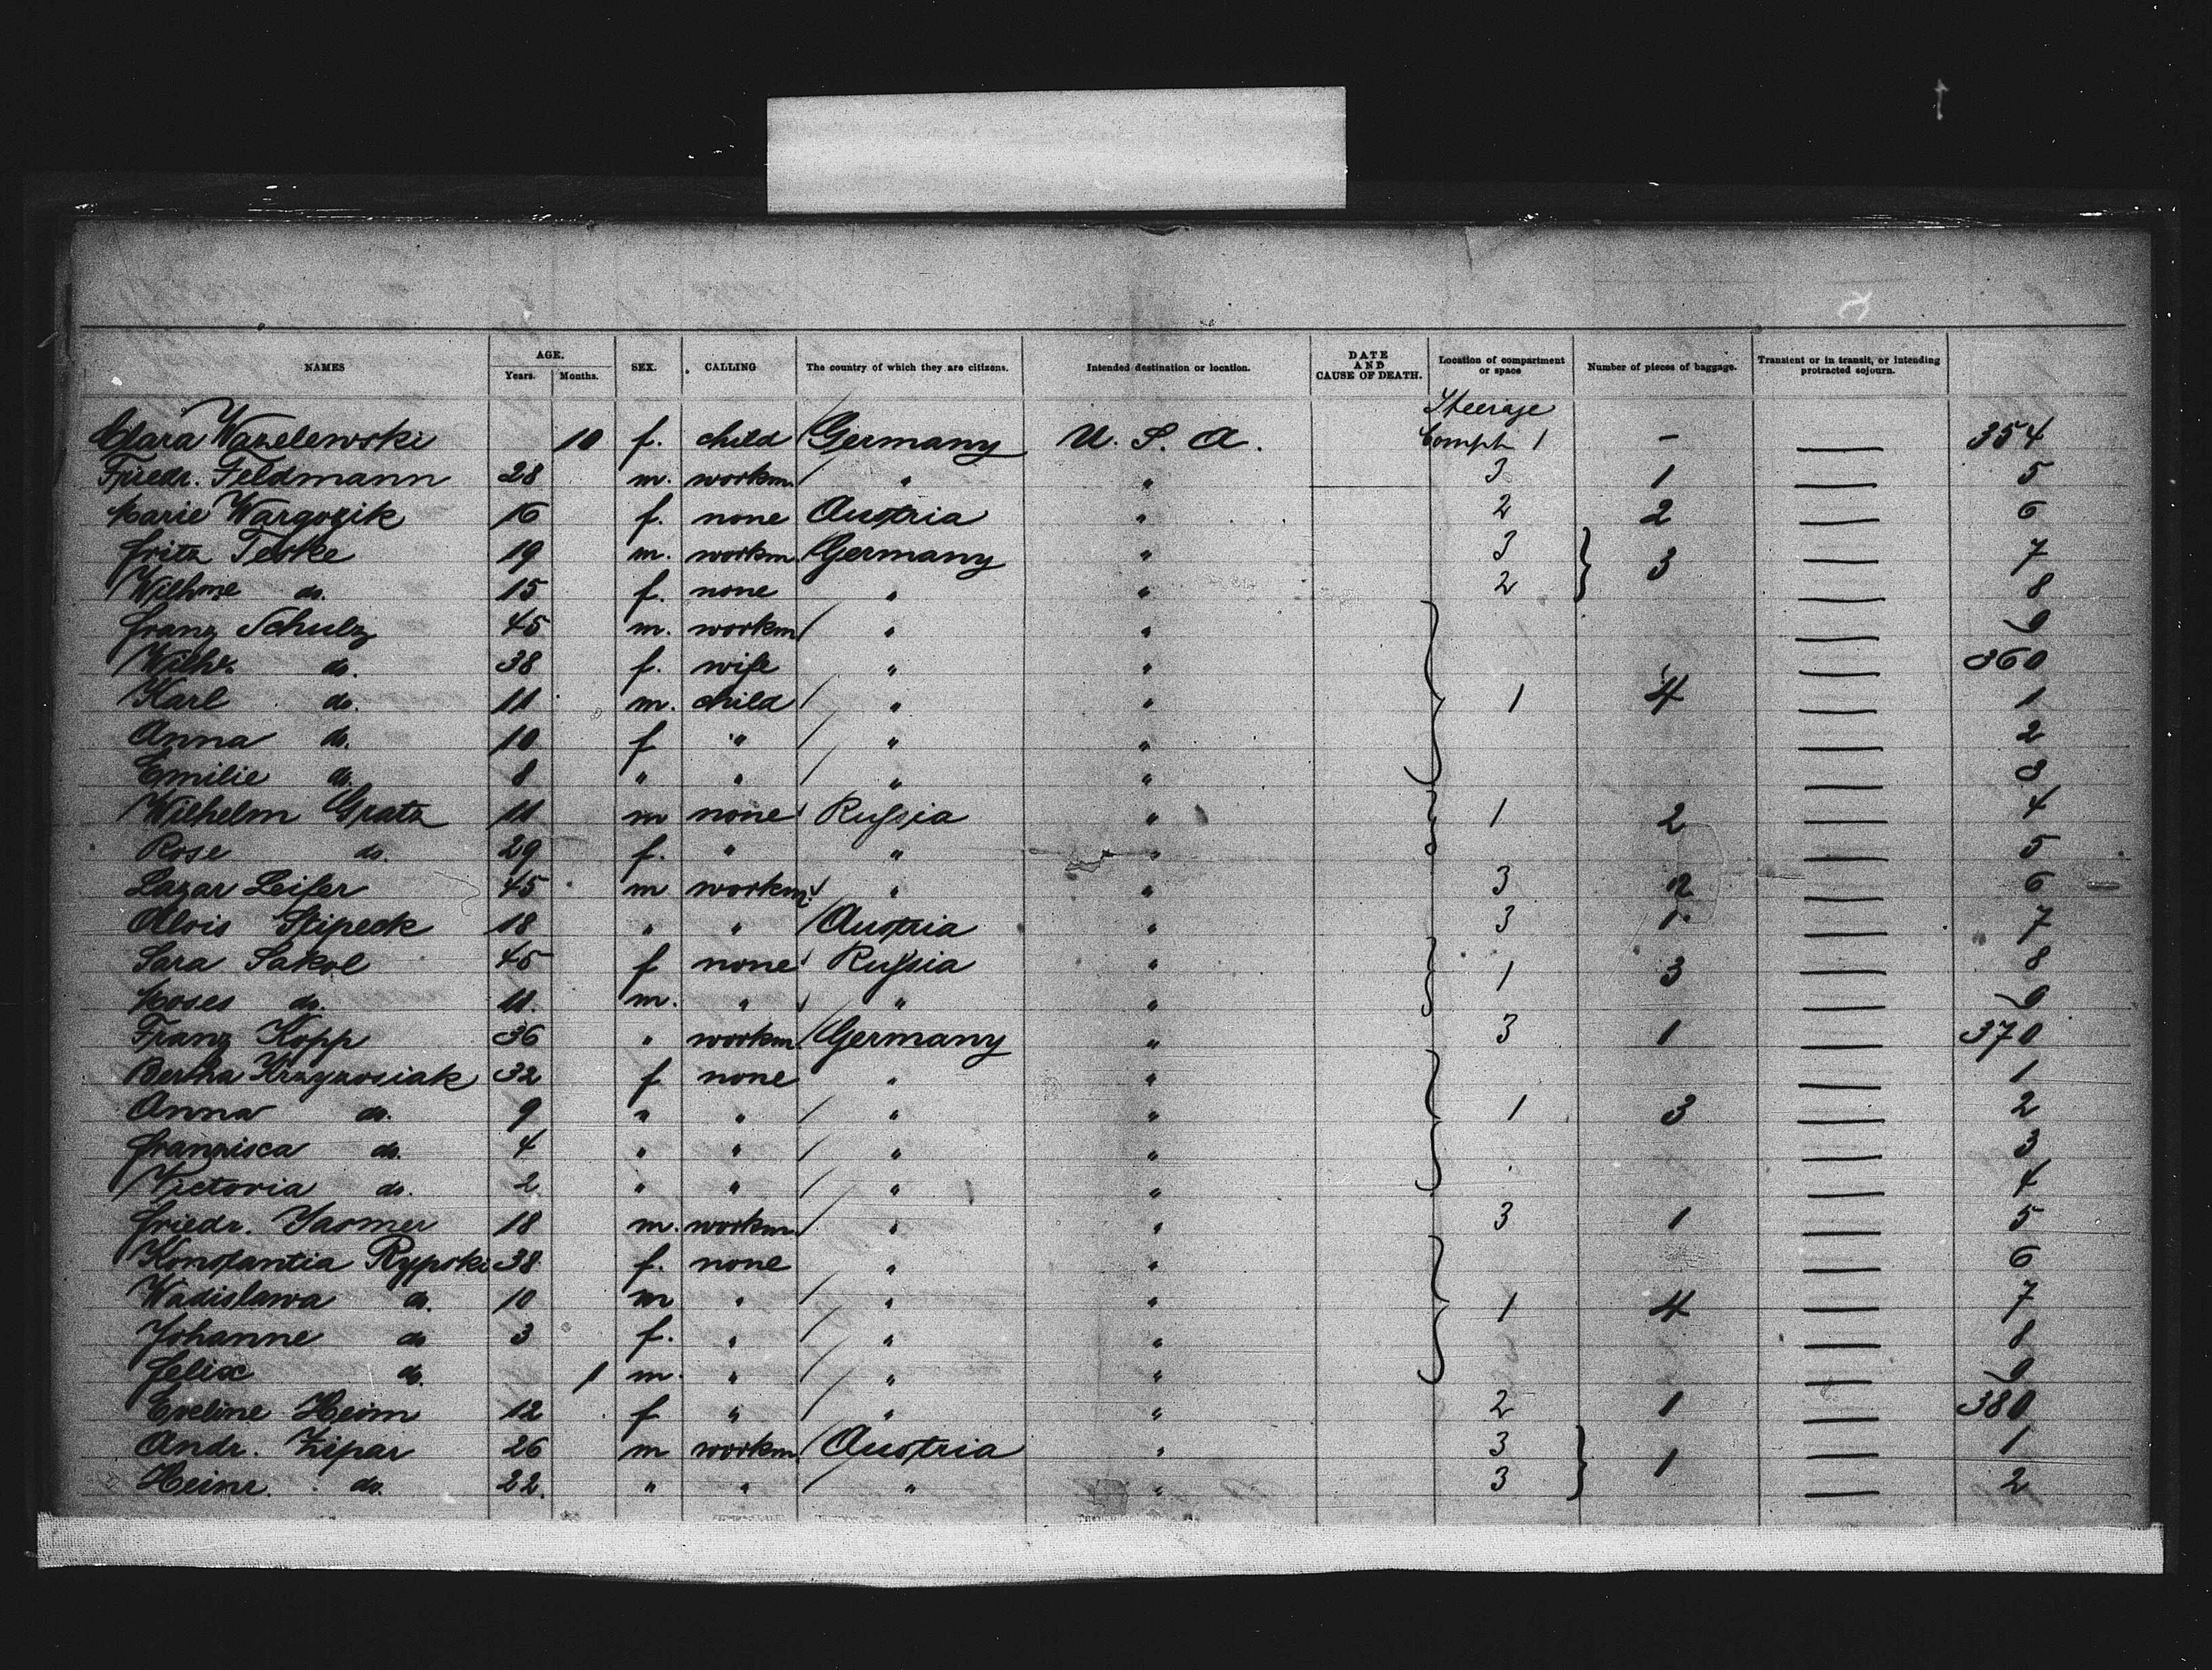 NAMES AGE. Years. Months. SEX. CALLING The country of which they are citizens. Intended destination or location. DATE AND CAUSE OF DEATH. Location of compartment or space Number of pieces of baggage. Transient or in transit, or intending protracted sojourn.
Steerage
Clara Wazelewski 10 f. child Germany U. S. A. Compt 1 — — 354
Friedr. Feldmann 28 m. workm. " " 3 1 — 5
Marie Wargozik 16 f. none Austria " 2 2 — 6
Fritz Teske 19 m. workm Germany " 3 3 — 7
Wilhme do. 15 f. none " " 2 — 8
Franz Schulz 45 m. workm " " — 9
Wilhe. do. 38 f. wife " " — 360
Karl do. 11 m. child " " 1 4 — 1
Anna do. 10 f " " " — 2
Emilie do. 8 " " " " — 3
Wilhelm Gratz 11 m none Russia " 1 2 — 4
Rose do. 29 f. " " " — 5
Lazar Leifer 45 m workm. " " 3 2 — 6
Alois Stipeck 18 " " Austria " 3 1 — 7
Sara Sakol 45 f none Russia " 1 3 — 8
Moses do. 11. m. " " " — 9
Franz Kopp 36 " workm. Germany " 3 1 — 370
Bertha Krzyzosiak 32 f none " " — 1
Anna do. 9 " " " " 1 3 — 2
Franzisca do. 4 " " " " — 3
Victoria do. 2 " " " " — 4
Friedr. 18 m. workm. " " 3 1 — 5
Konstantia Rypski 38 f. none " " — 6
Wadislawa do. 10 m " " " 1 4 — 7
Johanne do 3 f. " " " — 8
Felix do. 1 m. " " " — 9
Eveline Heim 12 f " " " 2 1 — 380
Andr. Zipar 26 m workm. Austria " 3 1 — 1
Heinr. do. 22. " " " " 3 — 2